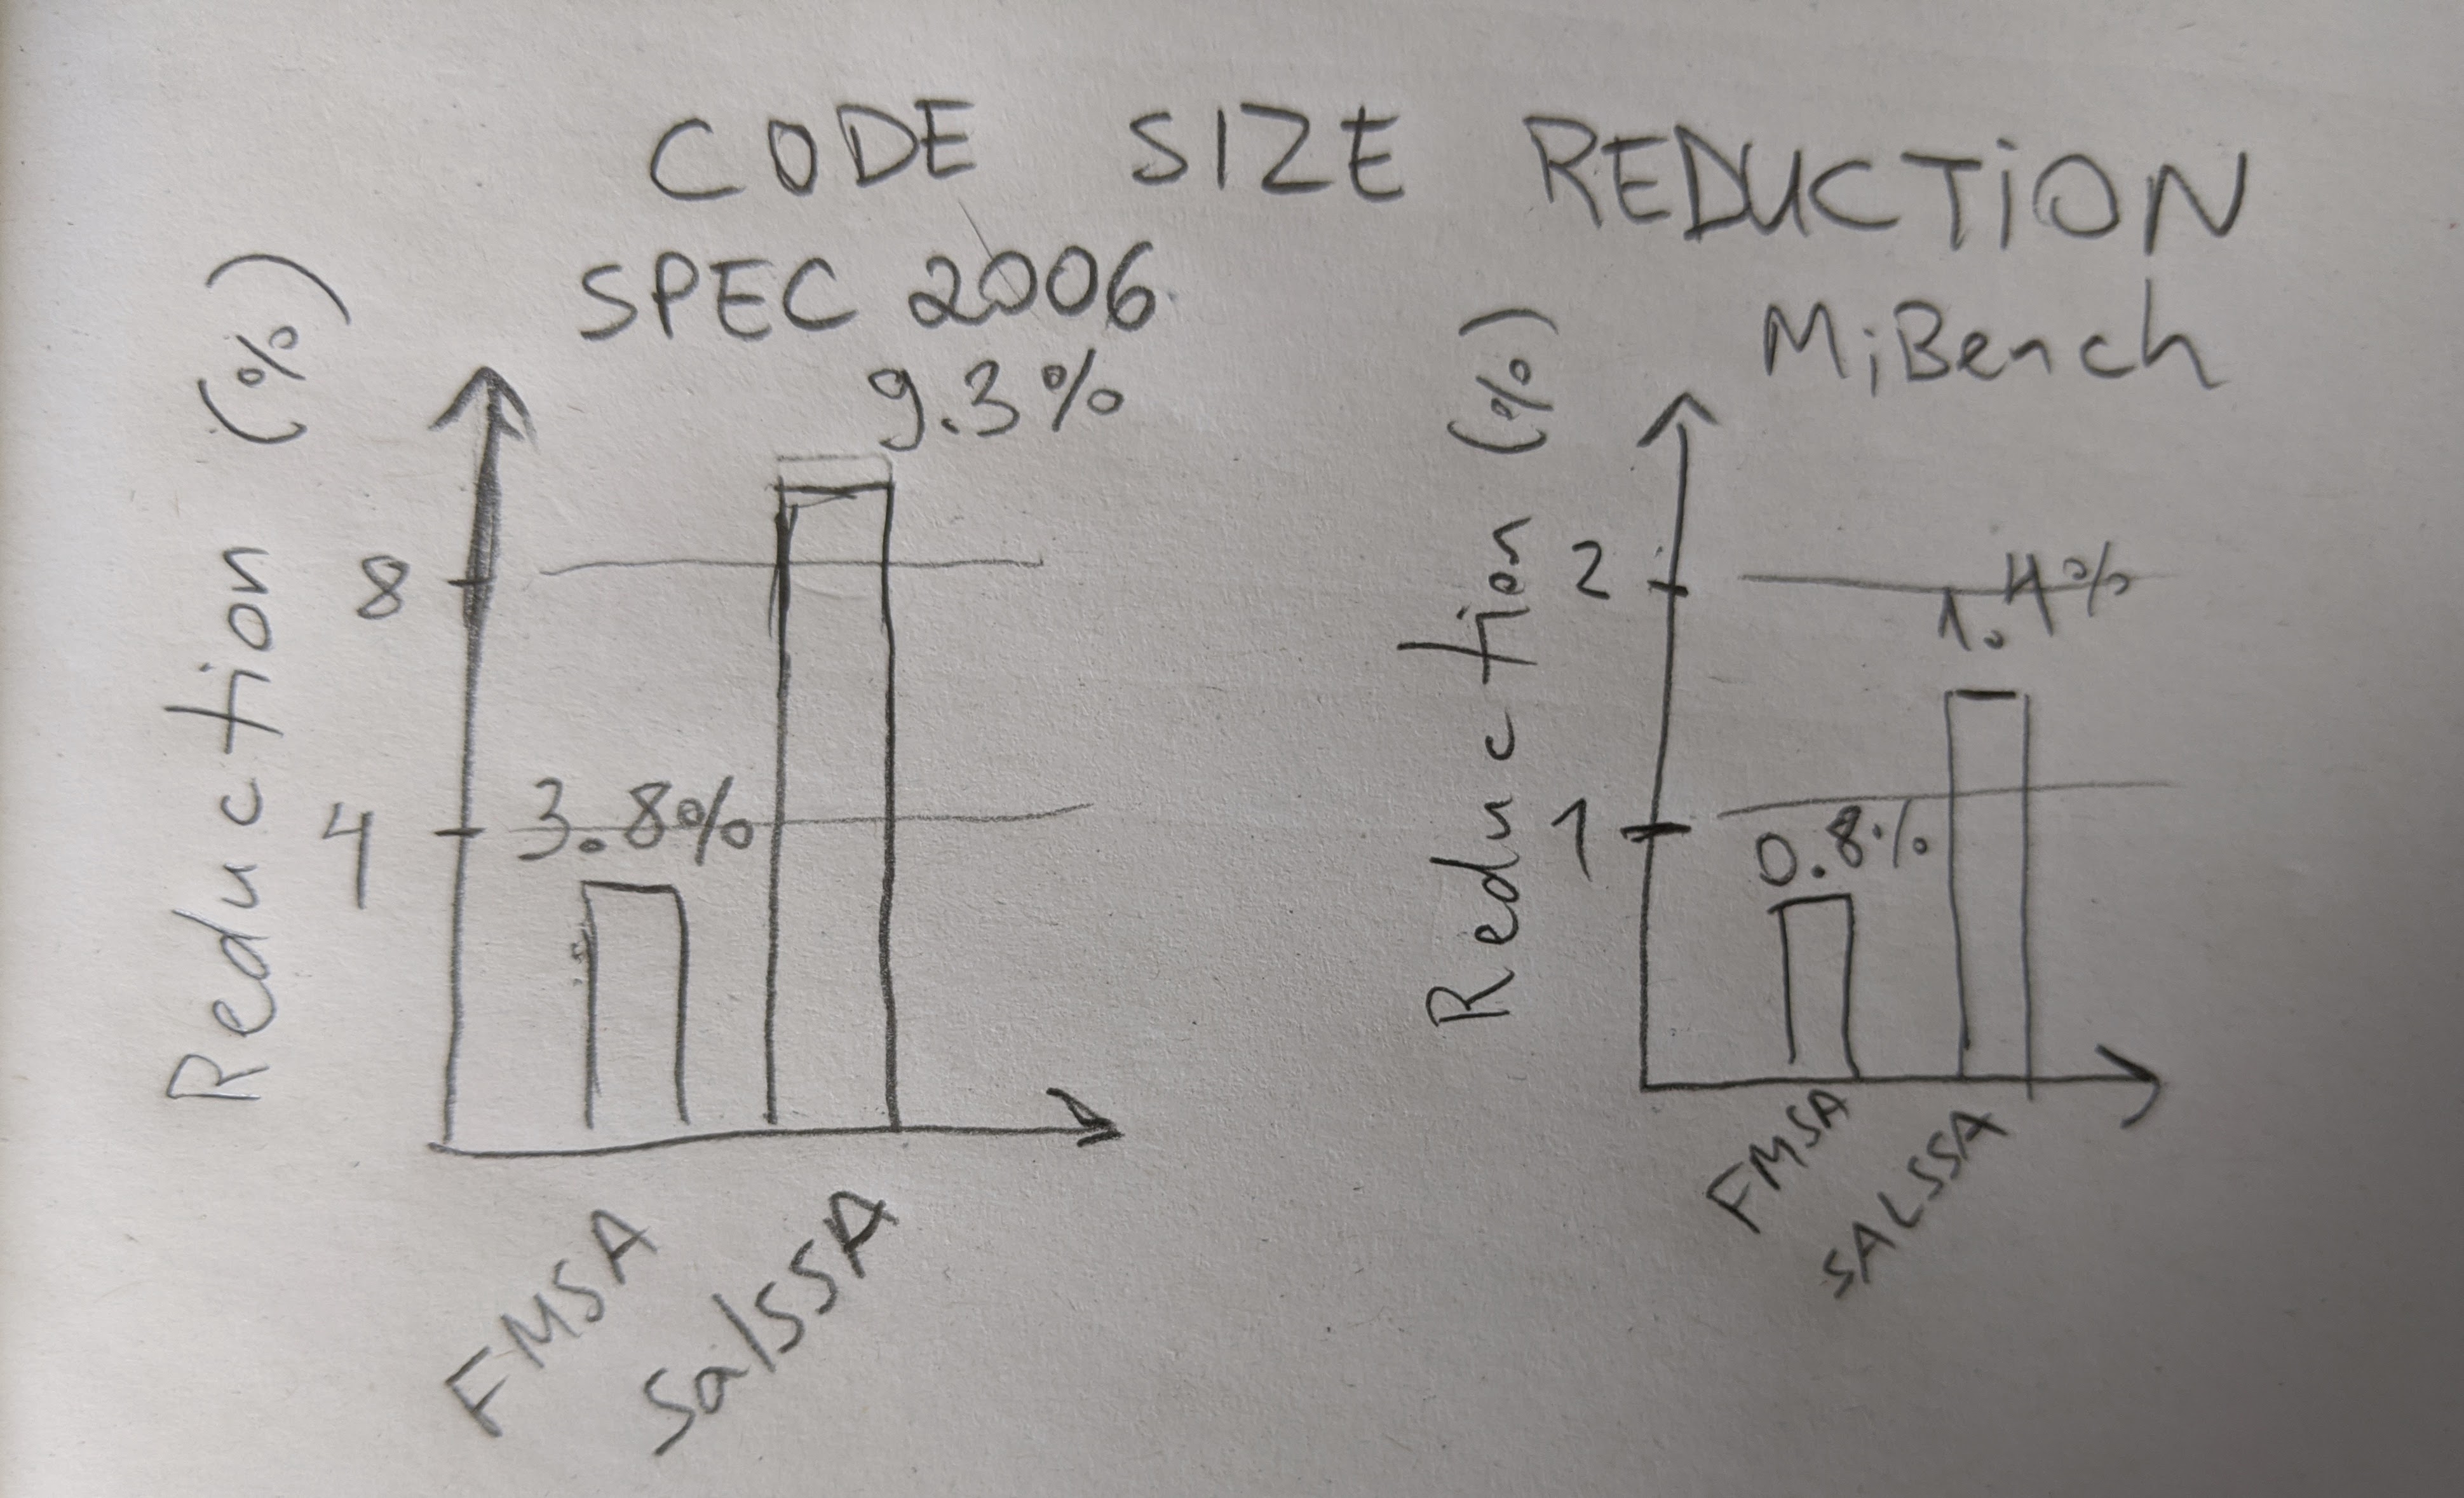 CODE SIZE REDUCTION
SPEC 2006
Reduction (%)
9.3%
8
3.8%
4
FMSA
SalSSA
MiBench
Reduction (%)
2
1.4%
1
0.8%
FMSA
SALSSA